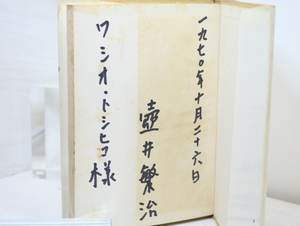 一九七〇年十月二十六日
壺井繁治
ワシオ・トシヒコ様